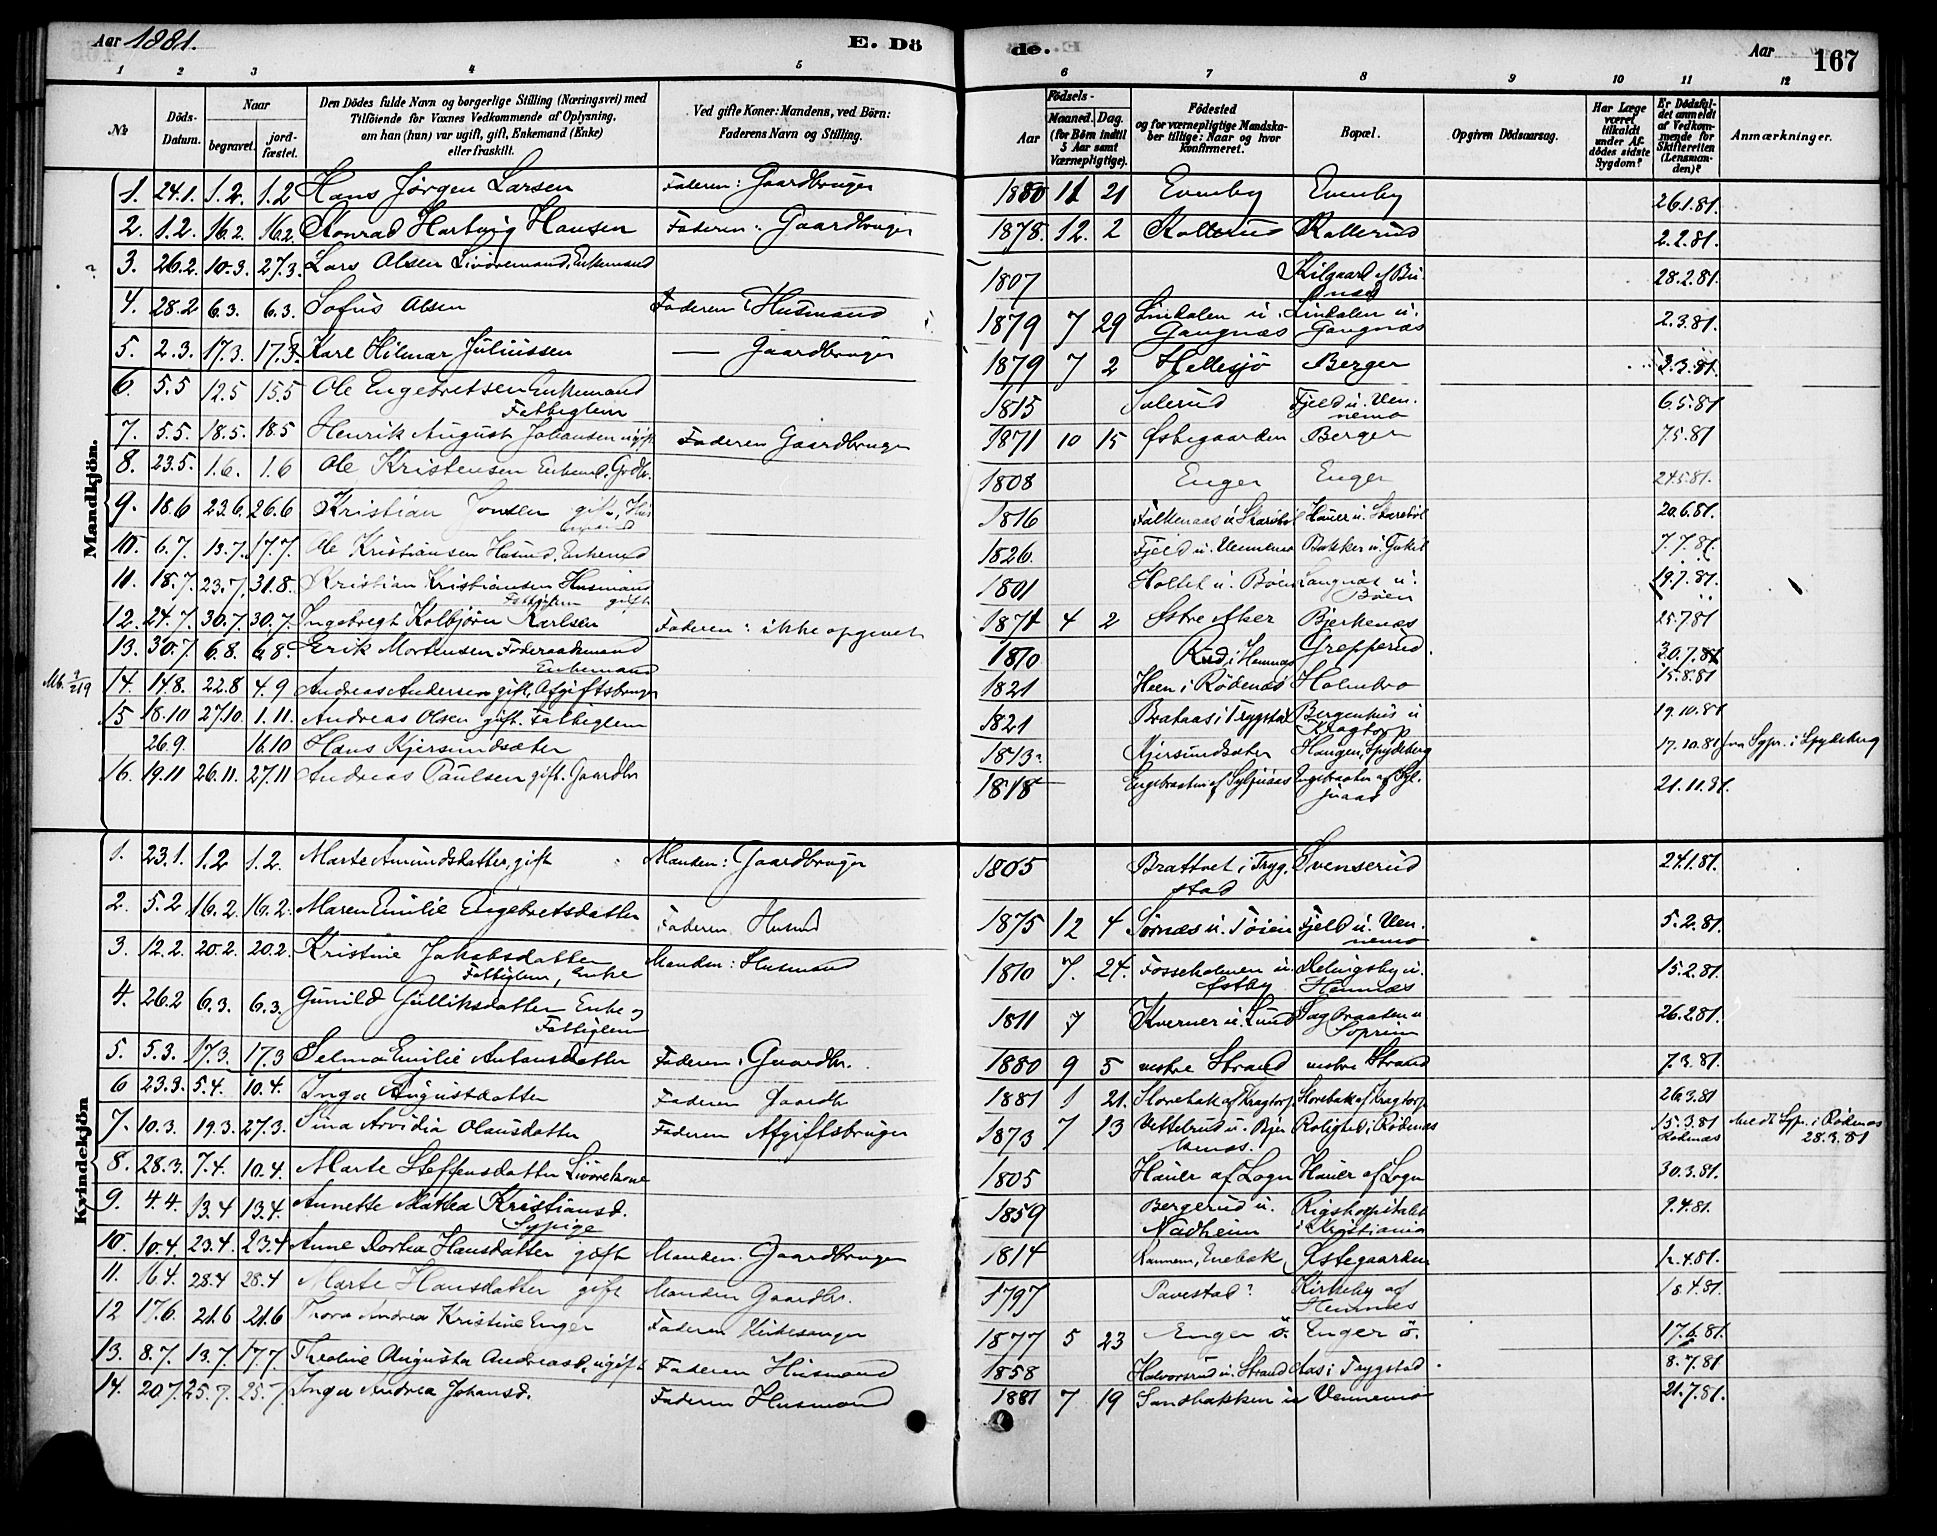 Aar 1881. E. Dö
de. Aar 167
1 2 3 4 5 6 7 8 9 10 11 12
№ Döds-Datum. Naar begravet. jordfæstet. Den Dödes fulde Navn og borgerlige Stilling (Næringsvei) med Tilföiende for Voxnes Vedkommende af Oplysning, om han (hun) var ugift, gift, Enkemand (Enke) eller fraskilt. Ved gifte Koner: Mandens, ved Börn: Faderens Navn og Stilling. Födsels- Aar Maaned. Dag. (for Börn indtil 5 Aar samt Værnepligtige). Födested og for værnepligtige Mandskaber tillige: Naar og hvor konfirmeret. Bopæl. Opgiven Dödsaarsag. Har Læge været tilkaldt under Afdödes sidste Sygdom? Er Dödsfaldet anmeldt af Vedkommende for Skifteretten (Lensmanden)? Anmærkninger.
Mandkjön.
1. 24.1. 1.2. 1.2 Hans Jørgen Larsen Faderen: Gaardbruger 1880 11 21 Evenby Evenby 26.1.81.
2. 1.2. 16.2. 16.2. Konrad Hartvig Hansen Faderen: Gaardbruger 1878. 12. 2 Kallerud Kallerud 2.2.81.
3. 26.2. 10.3. 27.3. Lars Olsen Livøremand, Enkemand 1807 Kilgaard af 28.2.81.
4. 28.2 6.3. 6.3. Sofus Olsen Faderen Husmand 1879 7 29 Lindalen u. Gangnæs Lindalen u. Gangnæs 2.3.81.
5. 2.3. 17.3. 17.3. Karl Hilmar Juliussen — Gaardbruger 1879 7 2 Hellesjø Berger 3.3.81.
6. 5.5 12.5 15.5 Ole Engebretsen Enkemand Fattiglem 1815 Sulerud Fjeld u. Vennemo 6.5.81
7. 5.5. 18.5. 18.5 Henrik August Johansen ugift Faderen Gaardbruger 1871 10 15 Østegaarden Berger 7.5.81
8. 23.5. 1.6. 1.6 Ole Kristensen Enkemd. Grdbr. 1808 Enger Enger 24.5.81.
9. 18.6 23.6. 26.6 Kristian Jonsen gift, Husmand 1816 Falkenaas u. Skarsbøl Hauer u. Skarsbøl 20.6.81.
10. 6.7. 13.7. 17.7. Ole Kristiansen Husmd. Enkemd 1826. Fjeld u. Vennemo Bakker u. 7.7.81.
11. 18.7. 23.7. 31.8. Kristian Kristiansen Husmand Fattiglem gift 1801 Holtet u. Bøen Langnæs u. Bøen 19.7.81.
12. 24.7. 30.7. 30.7. Ingebregt Kolbjørn Karlsen Faderen: ikke opgivet 1871 4 2 Østre Aker Bjerkenæs 25.7.81
13. 30.7 6.8. 6.8. Erik Mortensen Føderaadsmand Enkemand 1810 Rud i Hemnæs Grepperud. 30.7.81
14. 14.8. 22.8 4.9 Andreas Andersen gift, Afgiftsbruger 1821 Heen i Rødenæs Holmbro 15.8.81
15 18.10 27.10. 1.11. Andreas Olsen gift. Fattiglem 1821 Brataas i Trygstad Bergenhus u Kragtorp 19.10.81
26.9. 16.10 Hans Kjersundsæter 1813. Kjersundsæter Haugen, Spydeberg 17.10.81 fra Sgpr. i Spydeberg
16. 19.11 26.11. 27.11 Andreas Paulsen gift. Gaardbr 1818 Engebraaten af Syljuaas Engebraaten af Syljuaas 21.11.81.
Kvindekjön
1. 23.1. 1.2 1.2. Marte Amundsdatter, gift Manden: Gaardbruger 1805 Brattvet i Trygstad Svenserud 24.1.81.
2. 5.2 16.2. 16.2. Maren Emilie Engebretsdatter Faderen Husmd 1875 12 4 Sørnæs u. Tøien Fjeld u. Vennemo 5.2.81.
3. 12.2. 20.2. 20.2. Kristine Jakobsdatter Fattiglem, Enke Manden: Husmand 1810 7. 24. Fosseholmen u. Østby Delingsby u. Hemnæs 15.2.81.
4. 26.2 6.3. 6.3. Gunild Gulliksdatter Enke Fattiglem 1811 7 Kverner u. Lund Sagbraaten u Soprim 26.2.81.
5. 5.3. 17.3. 17.3 Selma Emilie Antonsdatter Faderen: Gaardbr. 1880 9 5 vestre Strand vestre Strand 7.3.81.
6 23.3. 5.4. 10.4. Inga Augustdatter Faderen Gaardb 1881 1 21. Slorebak af Kragtorp. Slorebak af Kragtorp 26.3.81
7. 10.3. 19.3. 27.3. Sina Arvidia Olausdatter Faderen Afgiftsbruger 1873 7 13 Vettelsrud u. Bjerkenæs. Rolighed i Rødenæs 15.3.81 Rødenæs Medt Sgpr. i Rødenæs 28.3.81
8. 28.3. 7.4. 10.4. Marte Steffensdatter Livørekone 1805 Hauer af Logn Hauer af Logn 30.3.81.
9. 4.4. 13.4 13.4. Annette Mathea Kristiansd. Sypige 1859 Bergerud u. Nadheim Rigshospitalet i Kristiania 9.4.81.
10. 10.4. 23.4. 23.4 Anne Dorthea Hansdatter gift Manden: Gaardbruger 1814 Enebak Østegaarden 12.4.81.
11. 16.4. 28.4 28.4 Marte Hansdatter gift Manden Gaardbr. 1797 Pavestad? Kirkeby af Hemnæs 18.4.81.
12 17.6. 21.6 21.6 Thora Andrea Kristine Enger Faderen Kirkesanger 1877 5 23 Enger ö. Enger ö. 17.6.81.
13. 8.7. 13.7 17.7. Theoline Augusta Andreasd. ugift Faderen Husmand 1858 Halvorsrud u. Strand Aas i Trygstad. 8.7.81
14. 20.7. 25.7. 25.7. Inga Andrea Johansd. Faderen Husmand 1881 7 19 Sandbakken u Vennemo 21.7.81.